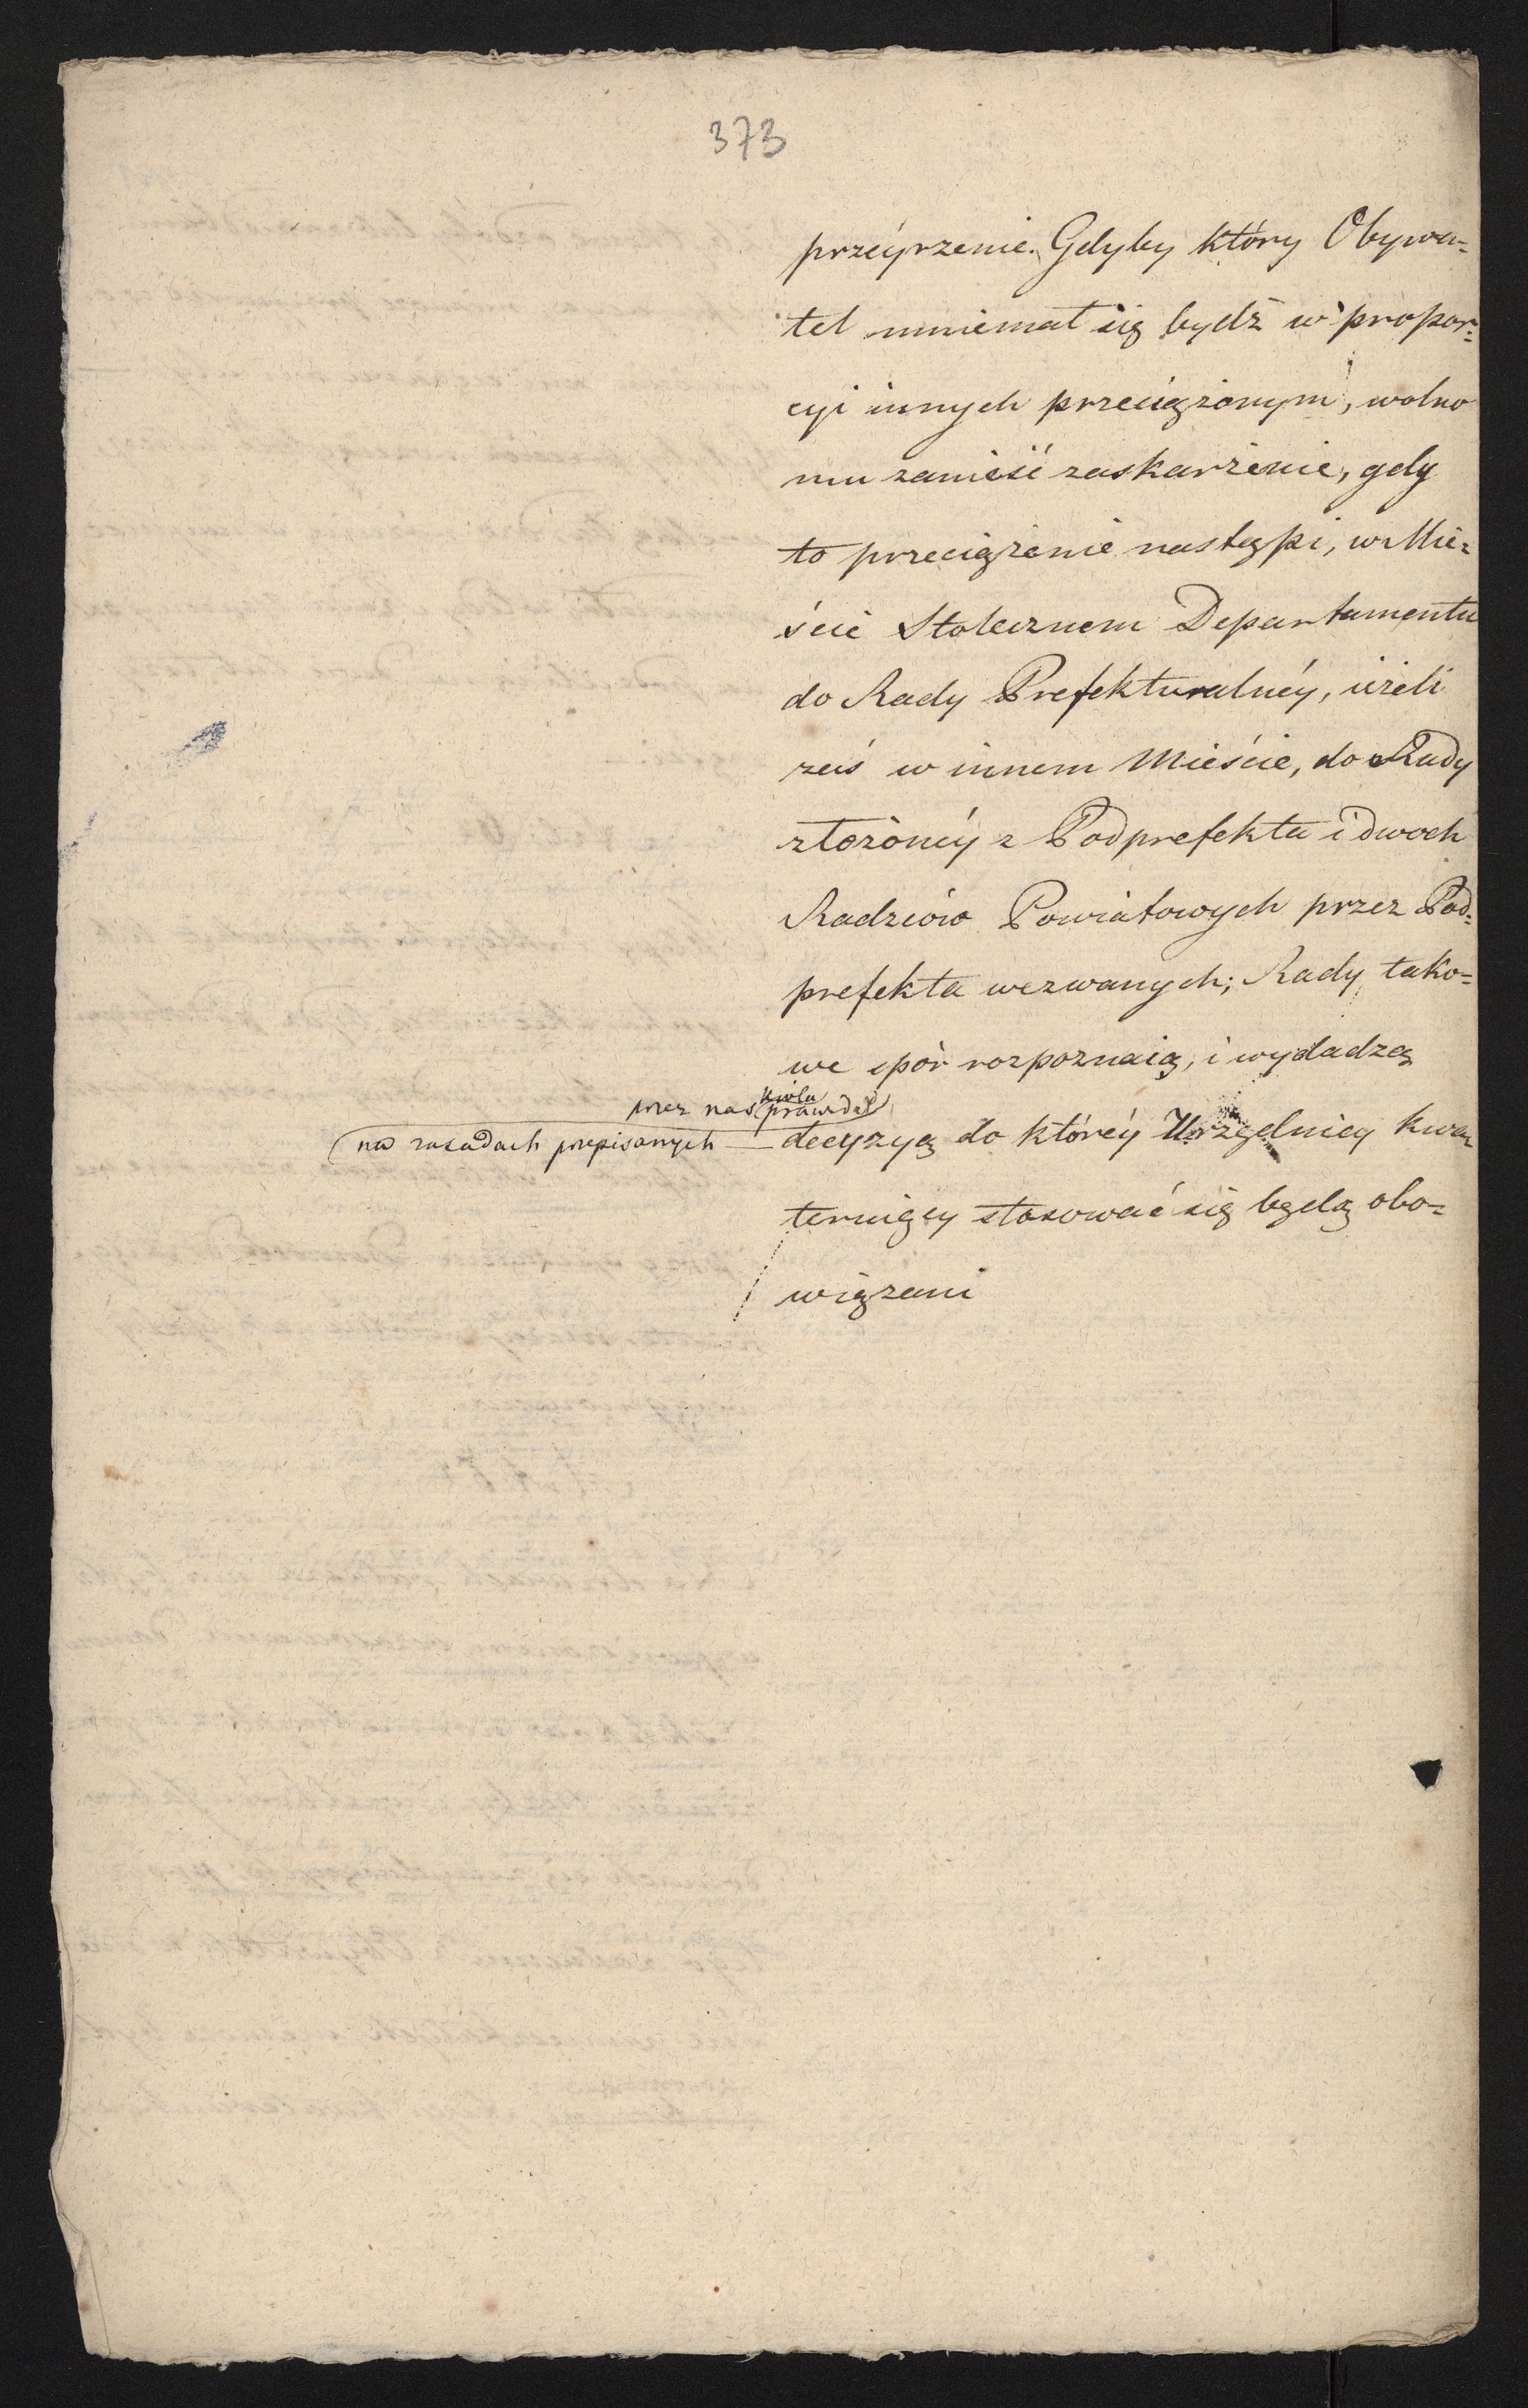 373
przeýrzenie. Gdyby który Obywa=
tel mniemał się bydź w propor=
cyi innych przeciążonym, wolno
mu zanieść zaskarżenie, gdy
to przeciążenie nastąpi, w Mie=
ście Stołecznem Departamentu
do Rady Prefekturalnéy, ieżeli
zaś w innem Mieście, do Rady
złożonéy z Podprefekta i dwoch
Radzców Powiatowych przez Pod=
prefekta wezwanych; Rady tako=
we spór rozpoznaią, i wydadzą
przez nas prawideł
na zasadach przepisanych decyzyą do któréy Urzędnicy kwa=
terniczy stosować się będą obo=
wiązani